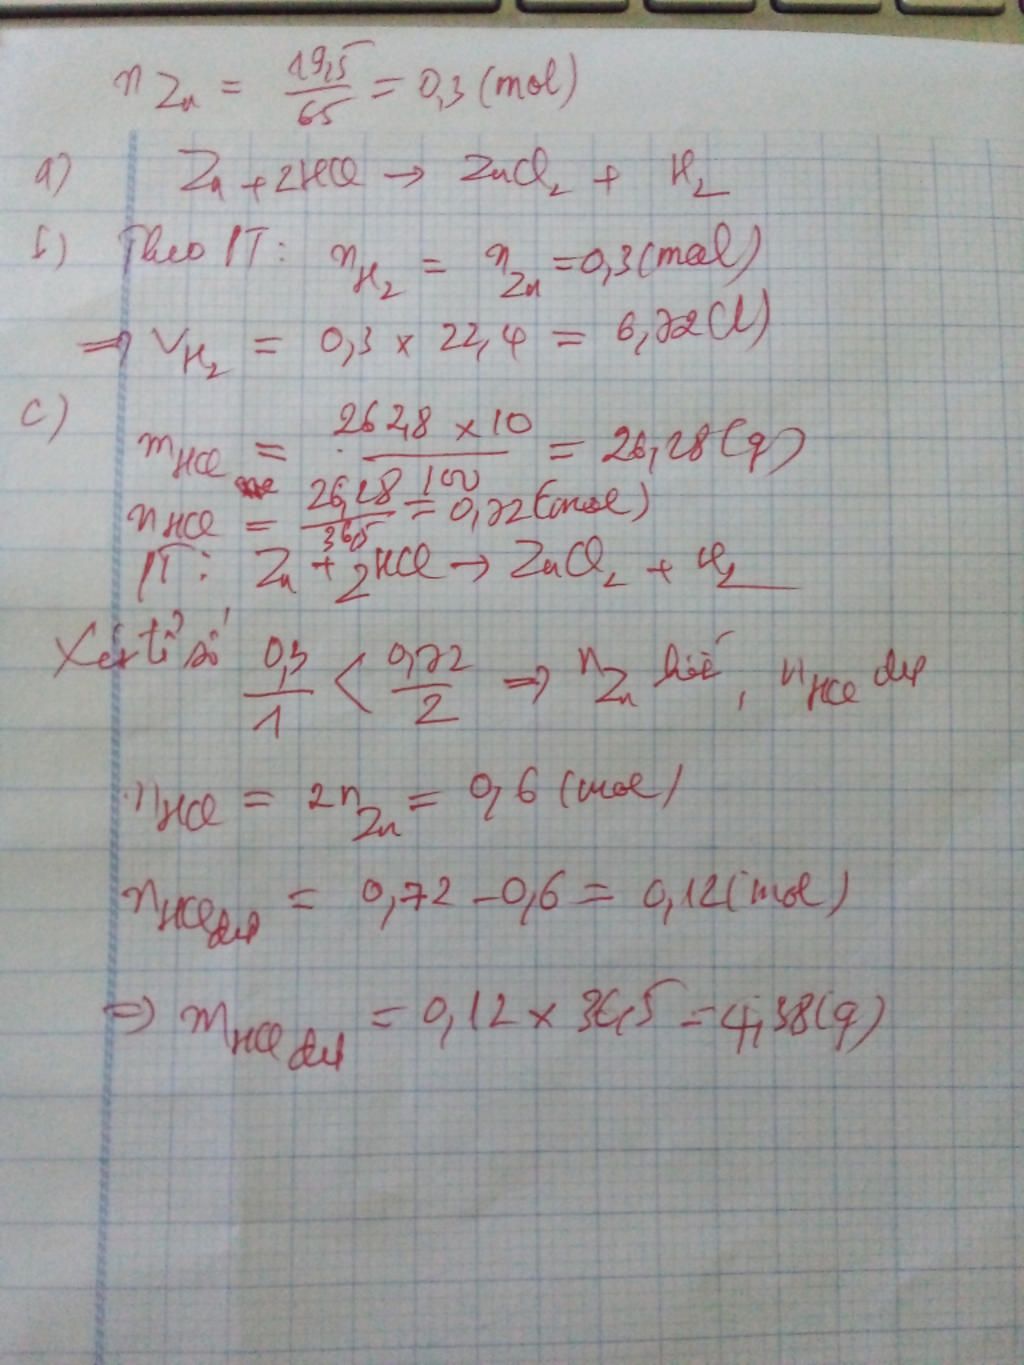 nZn = 19,5/65 = 0,3 (mol)
a) Zn + 2HCl → ZnCl2 + H2
b) Theo PT: nH2 = nZn = 0,3 (mol)
=> VH2 = 0,3 x 22,4 = 6,72 (l)
c)
mHCl = 262,8 x 10/100 = 26,28 (g)
nHCl = 26,28/36,5 = 0,72 (mol)
PT: Zn + 2HCl → ZnCl2 + H2
Xét tỉ số 0,3/1 < 0,72/2 => nZn hết, nHCl dư
nHCl = 2nZn = 0,6 (mol)
nHCl dư = 0,72 - 0,6 = 0,12 (mol)
=> mHCl dư = 0,12 x 36,5 = 4,38 (g)